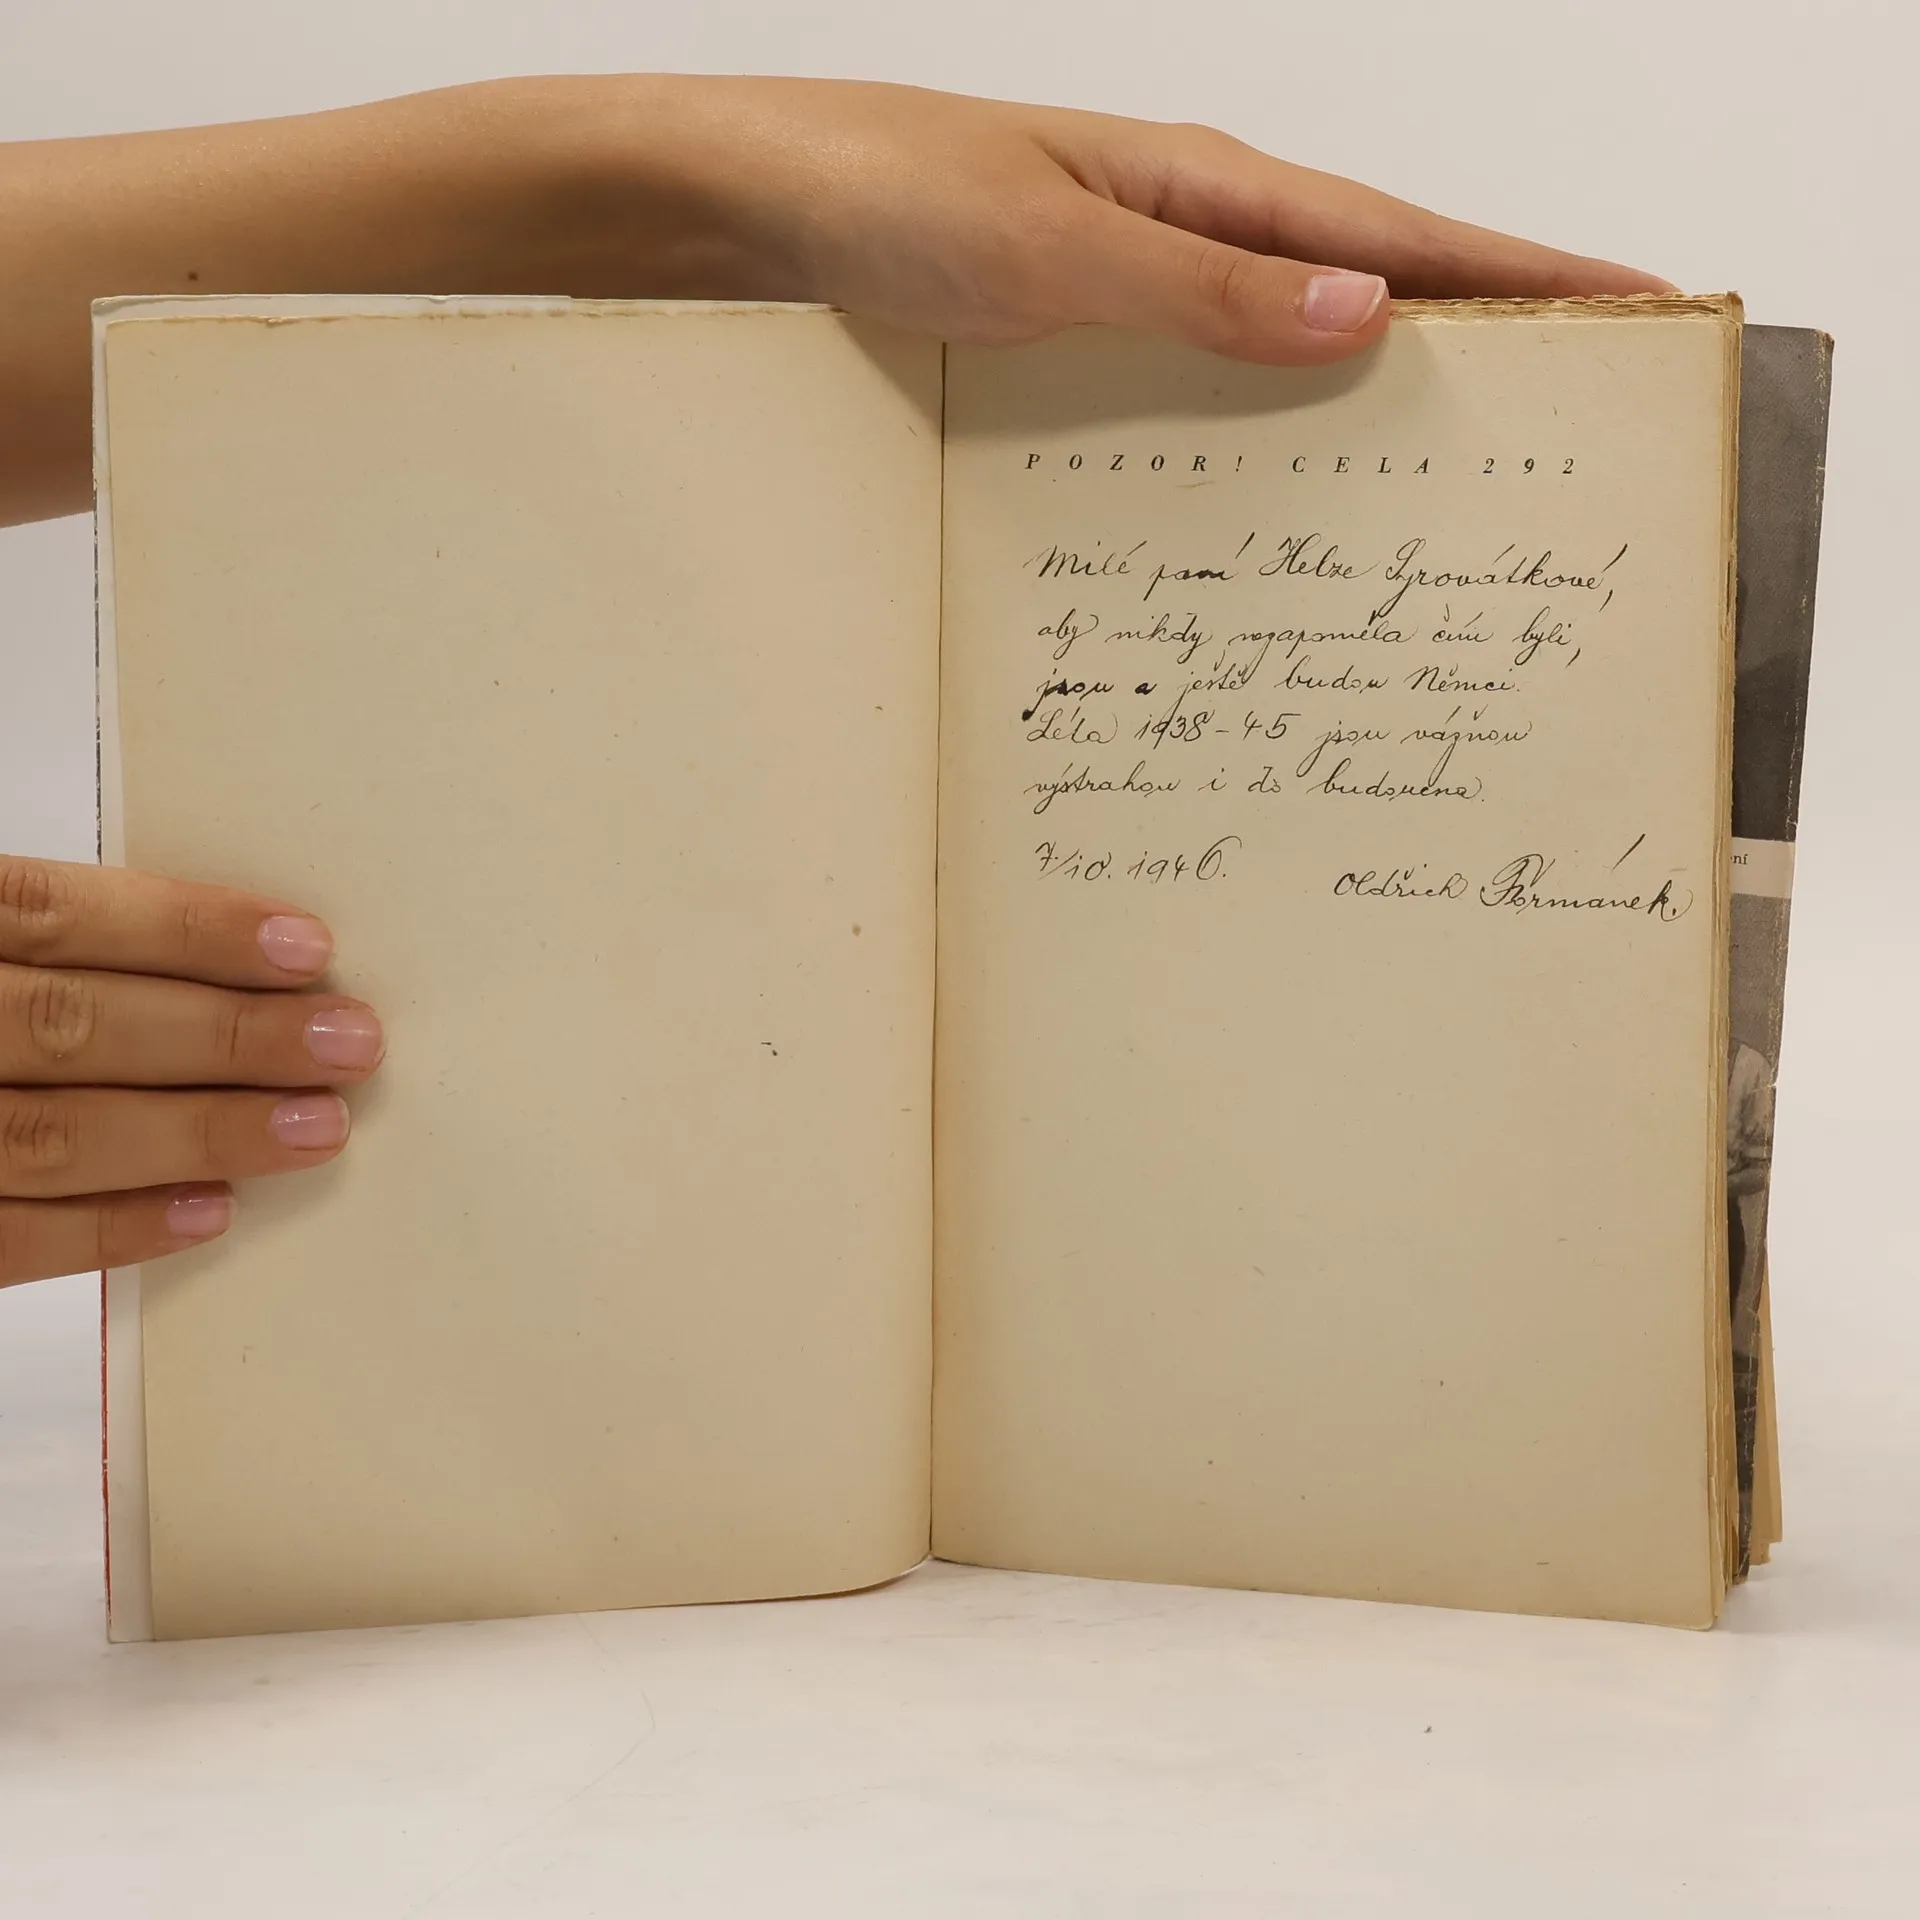 POZOR! CELA 292
Milé paní Helze Syrovátkové,
aby nikdy nezapoměla čím byli,
jsou a ještě budou Němci.
Léta 1938-45 jsou vážnou
výstrahou i do budoucna.
7/10. 1946.
Oldřich Formánek.
ní